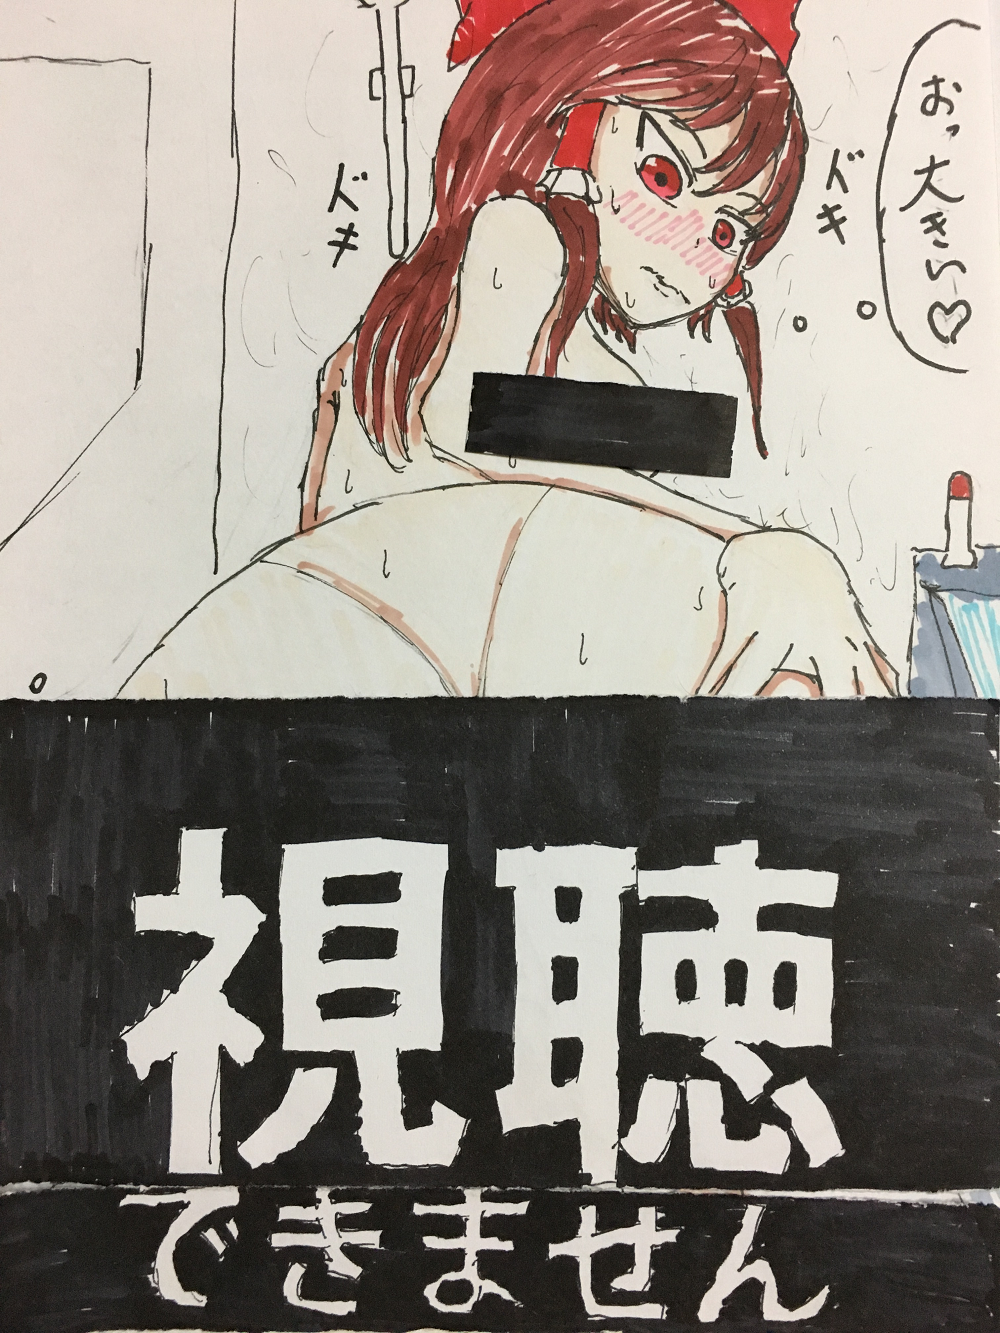 おっ大きい♡
ドキ
ドキ
視聴
できません